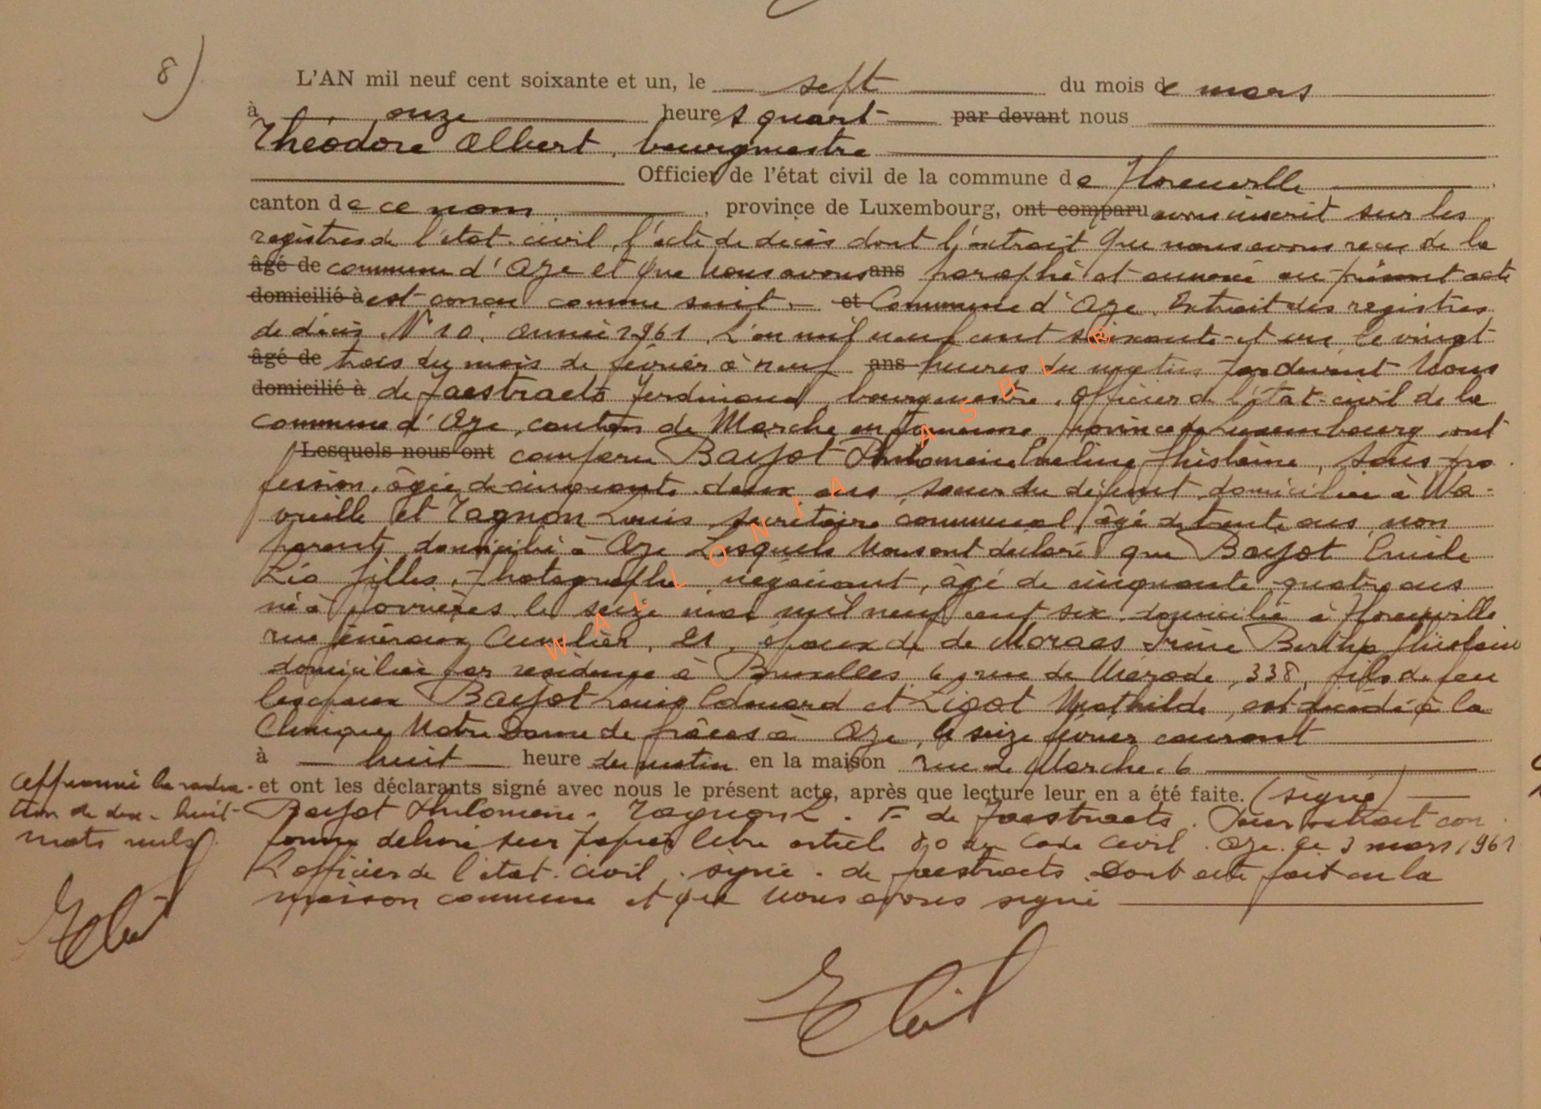 8)
L'AN mil neuf cent soixante et un, le sept du mois de mars
à onze heures quart par devant nous
Théodore Albert, bourgmestre
Officier de l'état civil de la commune de Florenville
canton de ce nom, province de Luxembourg, ont comparu avons inscrit sur les
registres de l'état-civil, l'acte de décès dont l'extrait que nous avons reçu de la
âgé de commune d'Aye et que nous avons ans paraphé et annexé au présent acte
domicilié à est conçu comme suit.- et Commune d'Aye. Extrait des registres
de décès. N° 10. année 1961. L'an mil neuf cent soixante-et un le vingt
âgé de trois du mois de février à neuf ans heures du matin par devant Nous
domicilié à de Jaestraets Ferdinand, bourgmestre, Officier de l'état-civil de la
commune d'Aye, canton de Marche en Famenne, province de Luxembourg ont
Lesquels nous ont comparu Bayot Philomène Ghislaine, sans pro-
fession, âgée de cinquante-deux ans, soeur du défunt, domiciliée à Wa-
veille et Tagnon Louis, secrétaire communal, âgé de trente ans, non
parent, domicilié à Aye. Lesquels Nous ont déclaré que Bayot Emile
Léo Gilles, photographe négociant, âgé de cinquante-quatre ans
né à Forrières le seize mai mil neuf cent six, domicilié à Florenville
rue Généraux Cuvelier, 21, époux de de Moraes Irène Bertha Ghislaine
domiciliée par résidence à Bruxelles, 6, rue de Mérode, 338, fils de feu
les époux Bayot Louis Edouard et Ligot Mathilde, est décédé à la
Clinique Notre Dame de Grâces à Aye, le seize février courant
à huit heure du matin en la maison rue de Marche. 6
et ont les déclarants signé avec nous le présent acte, après que lecture leur en a été faite. (signé)
Bayot Philomène. Tagnon L. F. de Jaestraets. Pour extrait con-
forme délivré sur papier libre article 80 du Code Civil. Aye. le 3 mars 1961
L'officier de l'état-civil. signé. de Jaestraets. Dont acte fait en la
maison commune et que nous avons signé
Approuvé la radia-
tion de dix-huit
mots nuls
WALLONIA ASBL